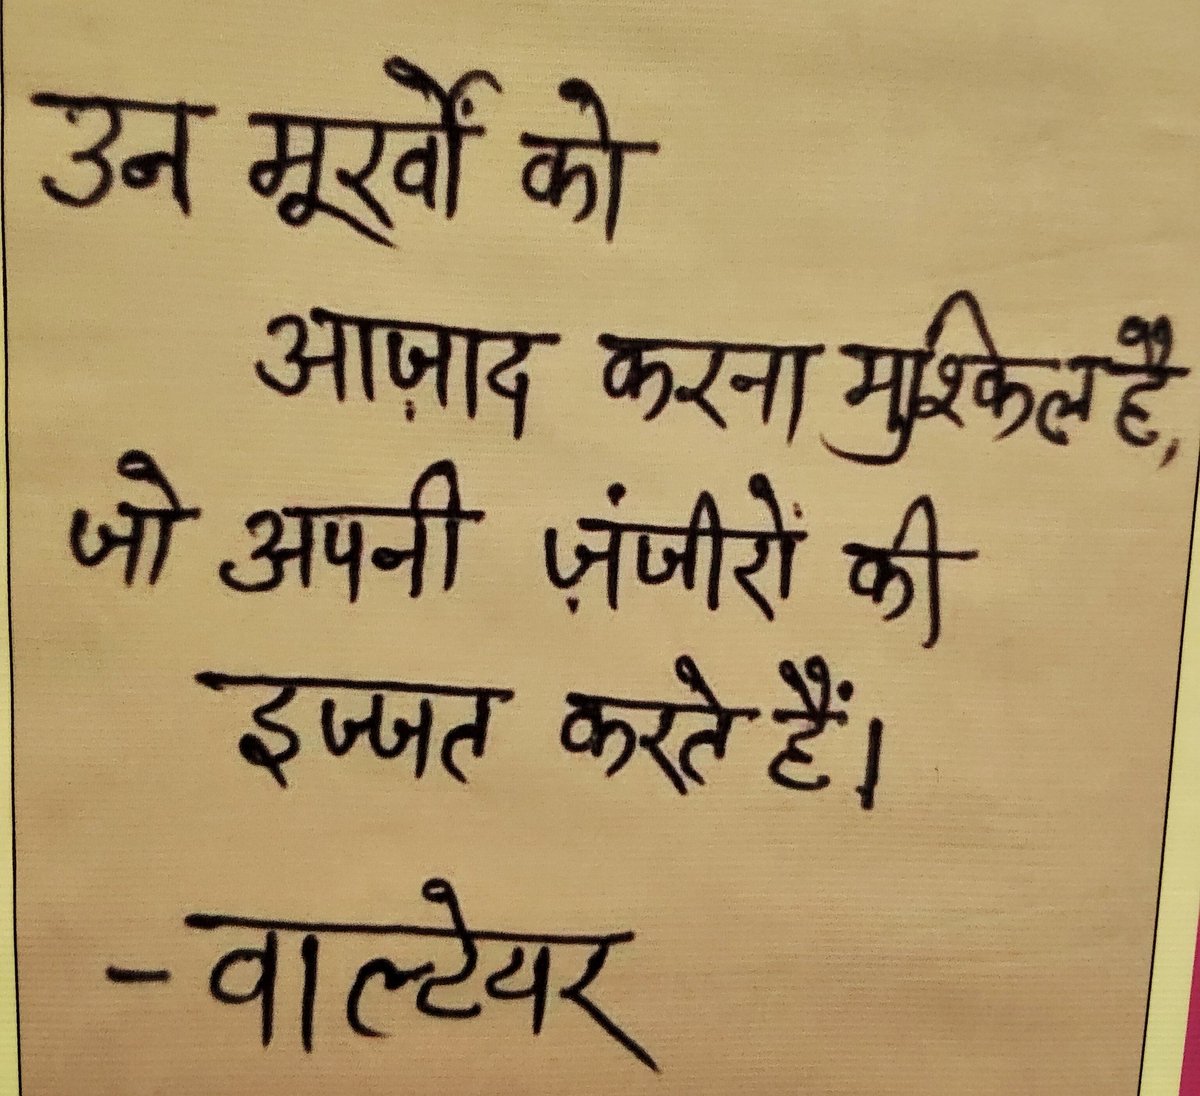 उन मूर्खों को
आज़ाद करना मुश्किल है,
जो अपनी ज़ंजीरों की
इज्जत करते हैं।
- वाल्टेयर